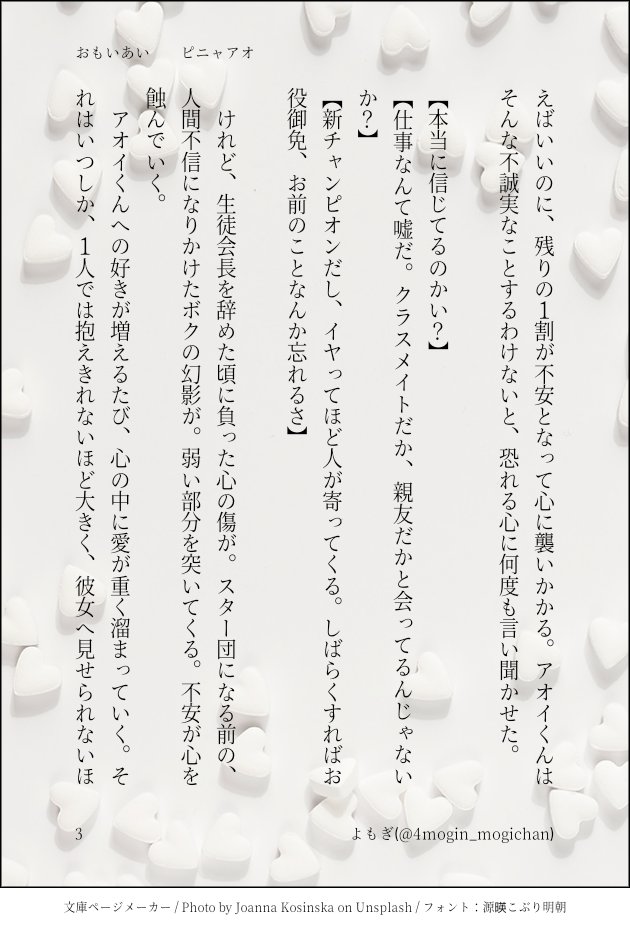 おもいあい　　ピニャアオ
えばいいのに、残りの１割が不安となって心に襲いかかる。アオイくんは
そんな不誠実なことするわけないと、恐れる心に何度も言い聞かせた。
【本当に信じてるのかい？】
【仕事なんて嘘だ。クラスメイトだか、親友だかと会ってるんじゃない
か？】
【新チャンピオンだし、イヤってほど人が寄ってくる。しばらくすればお
役御免、お前のことなんか忘れるさ】
　けれど、生徒会長を辞めた頃に負った心の傷が。スター団になる前の、
人間不信になりかけたボクの幻影が。弱い部分を突いてくる。不安が心を
蝕んでいく。
　アオイくんへの好きが増えるたび、心の中に愛が重く溜まっていく。そ
れはいつしか、１人では抱えきれないほど大きく、彼女へ見せられないほ
3
よもぎ(@4mogin_mogichan)
文庫ページメーカー / Photo by Joanna Kosinska on Unsplash / フォント：源暎こぶり明朝